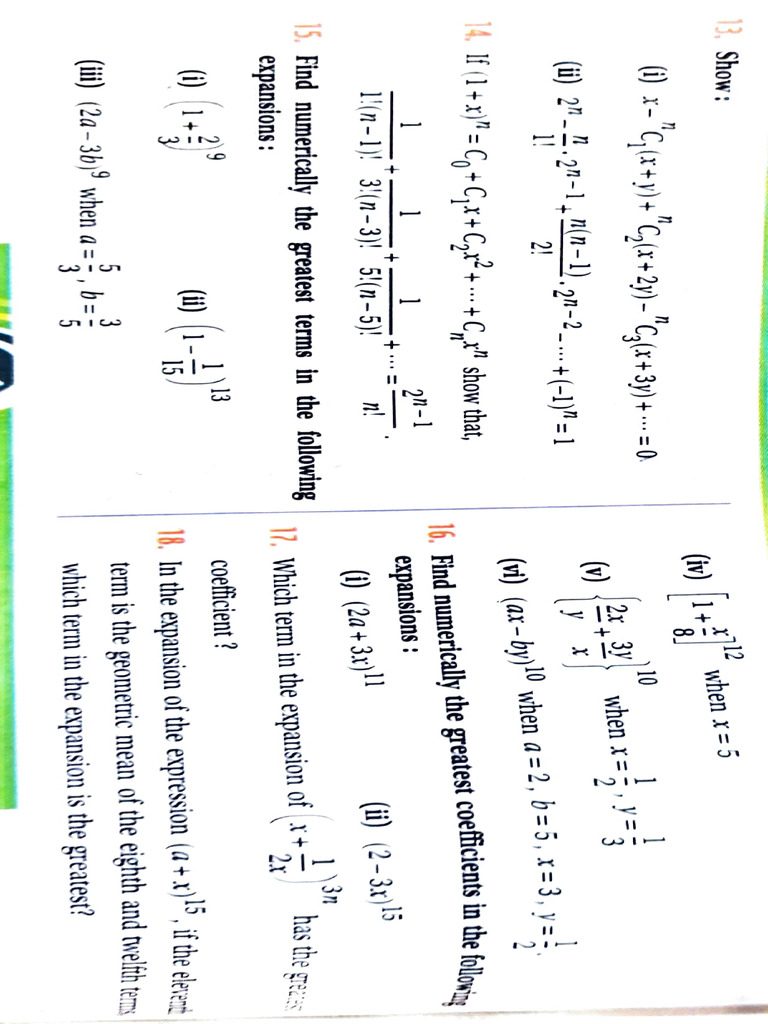 13. Show:
(i) x − ⁿC₁(x + y) + ⁿC₂(x + 2y) − ⁿC₃(x + 3y) + ··· = 0
(ii) 2ⁿ − n/1! · 2ⁿ⁻¹ + n(n−1)/2! · 2ⁿ⁻² − ··· + (−1)ⁿ = 1
14. If (1 + x)ⁿ = C₀ + C₁x + C₂x² + ··· + Cₙxⁿ show that,
1/1!(n−1)! + 1/3!(n−3)! + 1/5!(n−5)! + ··· = 2ⁿ⁻¹/n! .
15. Find numerically the greatest terms in the following
expansions:
(i) (1 + 2/3)⁹ (ii) (1 − 1/15)¹³
(iii) (2a − 3b)⁹ when a = 5/3, b = 3/5
(iv) [1 + x/8]¹² when x = 5
(v) {2x/y + 3y/x}¹⁰ when x = 1/2, y = 1/3
(vi) (ax − by)¹⁰ when a = 2, b = 5, x = 3, y = 1/2.
16. Find numerically the greatest coefficients in the following
expansions:
(i) (2a + 3x)¹¹ (ii) (2 − 3x)¹⁵
17. Which term in the expansion of (x + 1/2x)³ⁿ has the
coefficient?
18. In the expansion of the expression (a + x)¹⁵, if the eleventh
term is the geometric mean of the eighth and twelfth terms
which term in the expansion is the greatest?